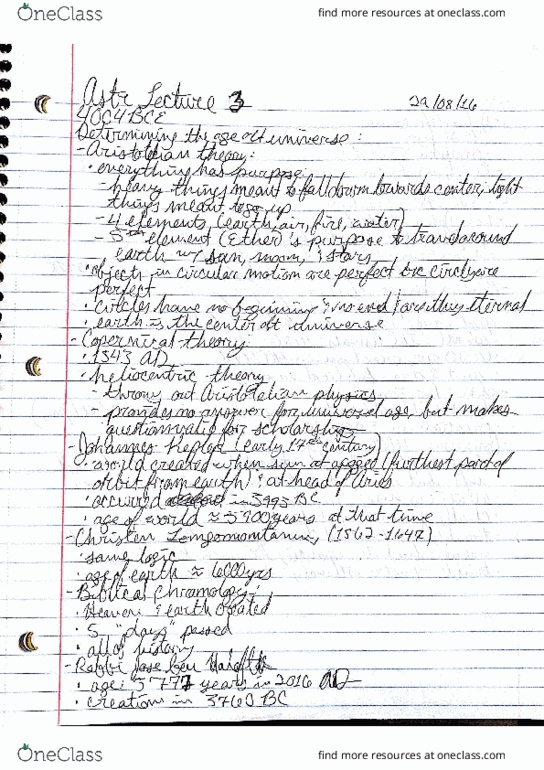 OneClass
find more resources at oneclass.com
Astr Lecture 3
29/08/16
4004 BCE
Determining the age of universe:
- Aristotelian theory:
• everything has purpose:
- heavy things meant to fall down towards center, light
things meant to go up
- 4 elements (earth, air, fire, water)
- 5th element (Ether)'s purpose to travel around
earth w/ sun, moon, & stars
• objects in circular motion are perfect bc circles are
perfect
• circles have no beginning & no end & are thus eternal
• earth is the center of universe
- Copernical theory:
• 1543 AD
• heliocentric theory
throw out Aristotelian physics
- provides no answer for universal age but makes
question valid for scholarship
- Johannes Kepler (early 17th century)
• world created when sun at apogee (furthest part of
orbit from earth) & at head of Aries
• occurred in 3993 BC
• age of world ≈ 5900 years at that time
- Christen Longomontanus, (1562-1647)
• same logic
• age of earth ≈ 6000 yrs
- Biblical Chronology:
• Heaven & earth created
• 5 "days" passed
• all of history
- Rabbi Jose ben
• age: 5777 years in 2016 AD
• creation in 3760 BC
OneClass
find more resources at oneclass.com